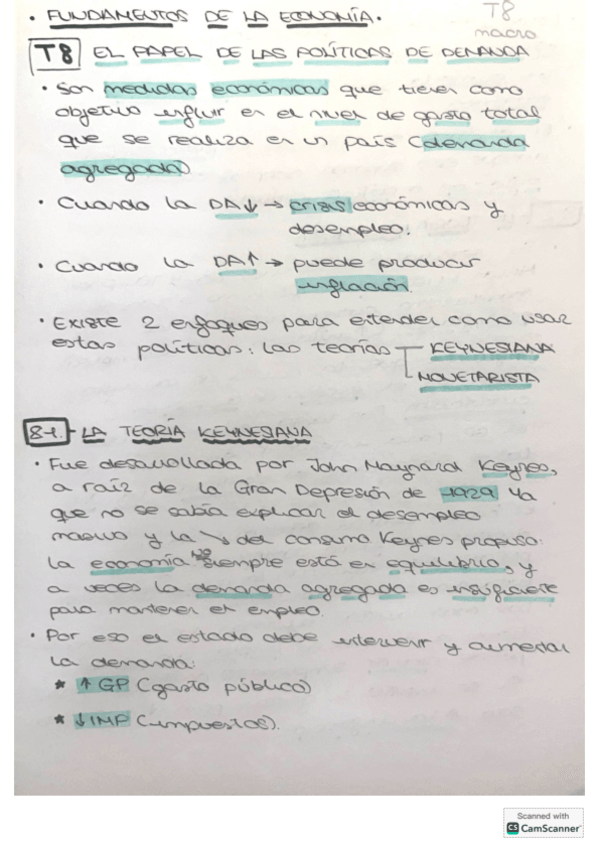 • FUNDAMENTOS DE LA ECONOMÍA.
T8
macro
T8 EL PAPEL DE LAS POLÍTICAS DE DEMANDA
• Son medidas económicas que tienen como
objetivo influir en el nivel de gasto total
que se realiza en un país (demanda
agregada)
• Cuando la DA↓ → crisis económicas y
desempleo.
• Cuando la DA↑ → puede producir
inflación.
• Existe 2 enfoques para entender como usar
estas políticas: las teorías KEYNESIANA
MONETARISTA
8.1.- LA TEORÍA KEYNESIANA
• Fue desarrollada por John Maynard Keynes,
a raíz de la Gran Depresión de 1929 ya
que no se sabía explicar el desempleo
masivo y la ↘ del consumo Keynes propuso:
la economía no siempre está en equilibrio, y
a veces la demanda agregada es insuficiente
para mantener el empleo.
• Por eso el estado debe intervenir y aumentar
la demanda:
* ↑ GP (gasto público)
* ↓ IMP (impuestos).
Scanned with
CS CamScanner